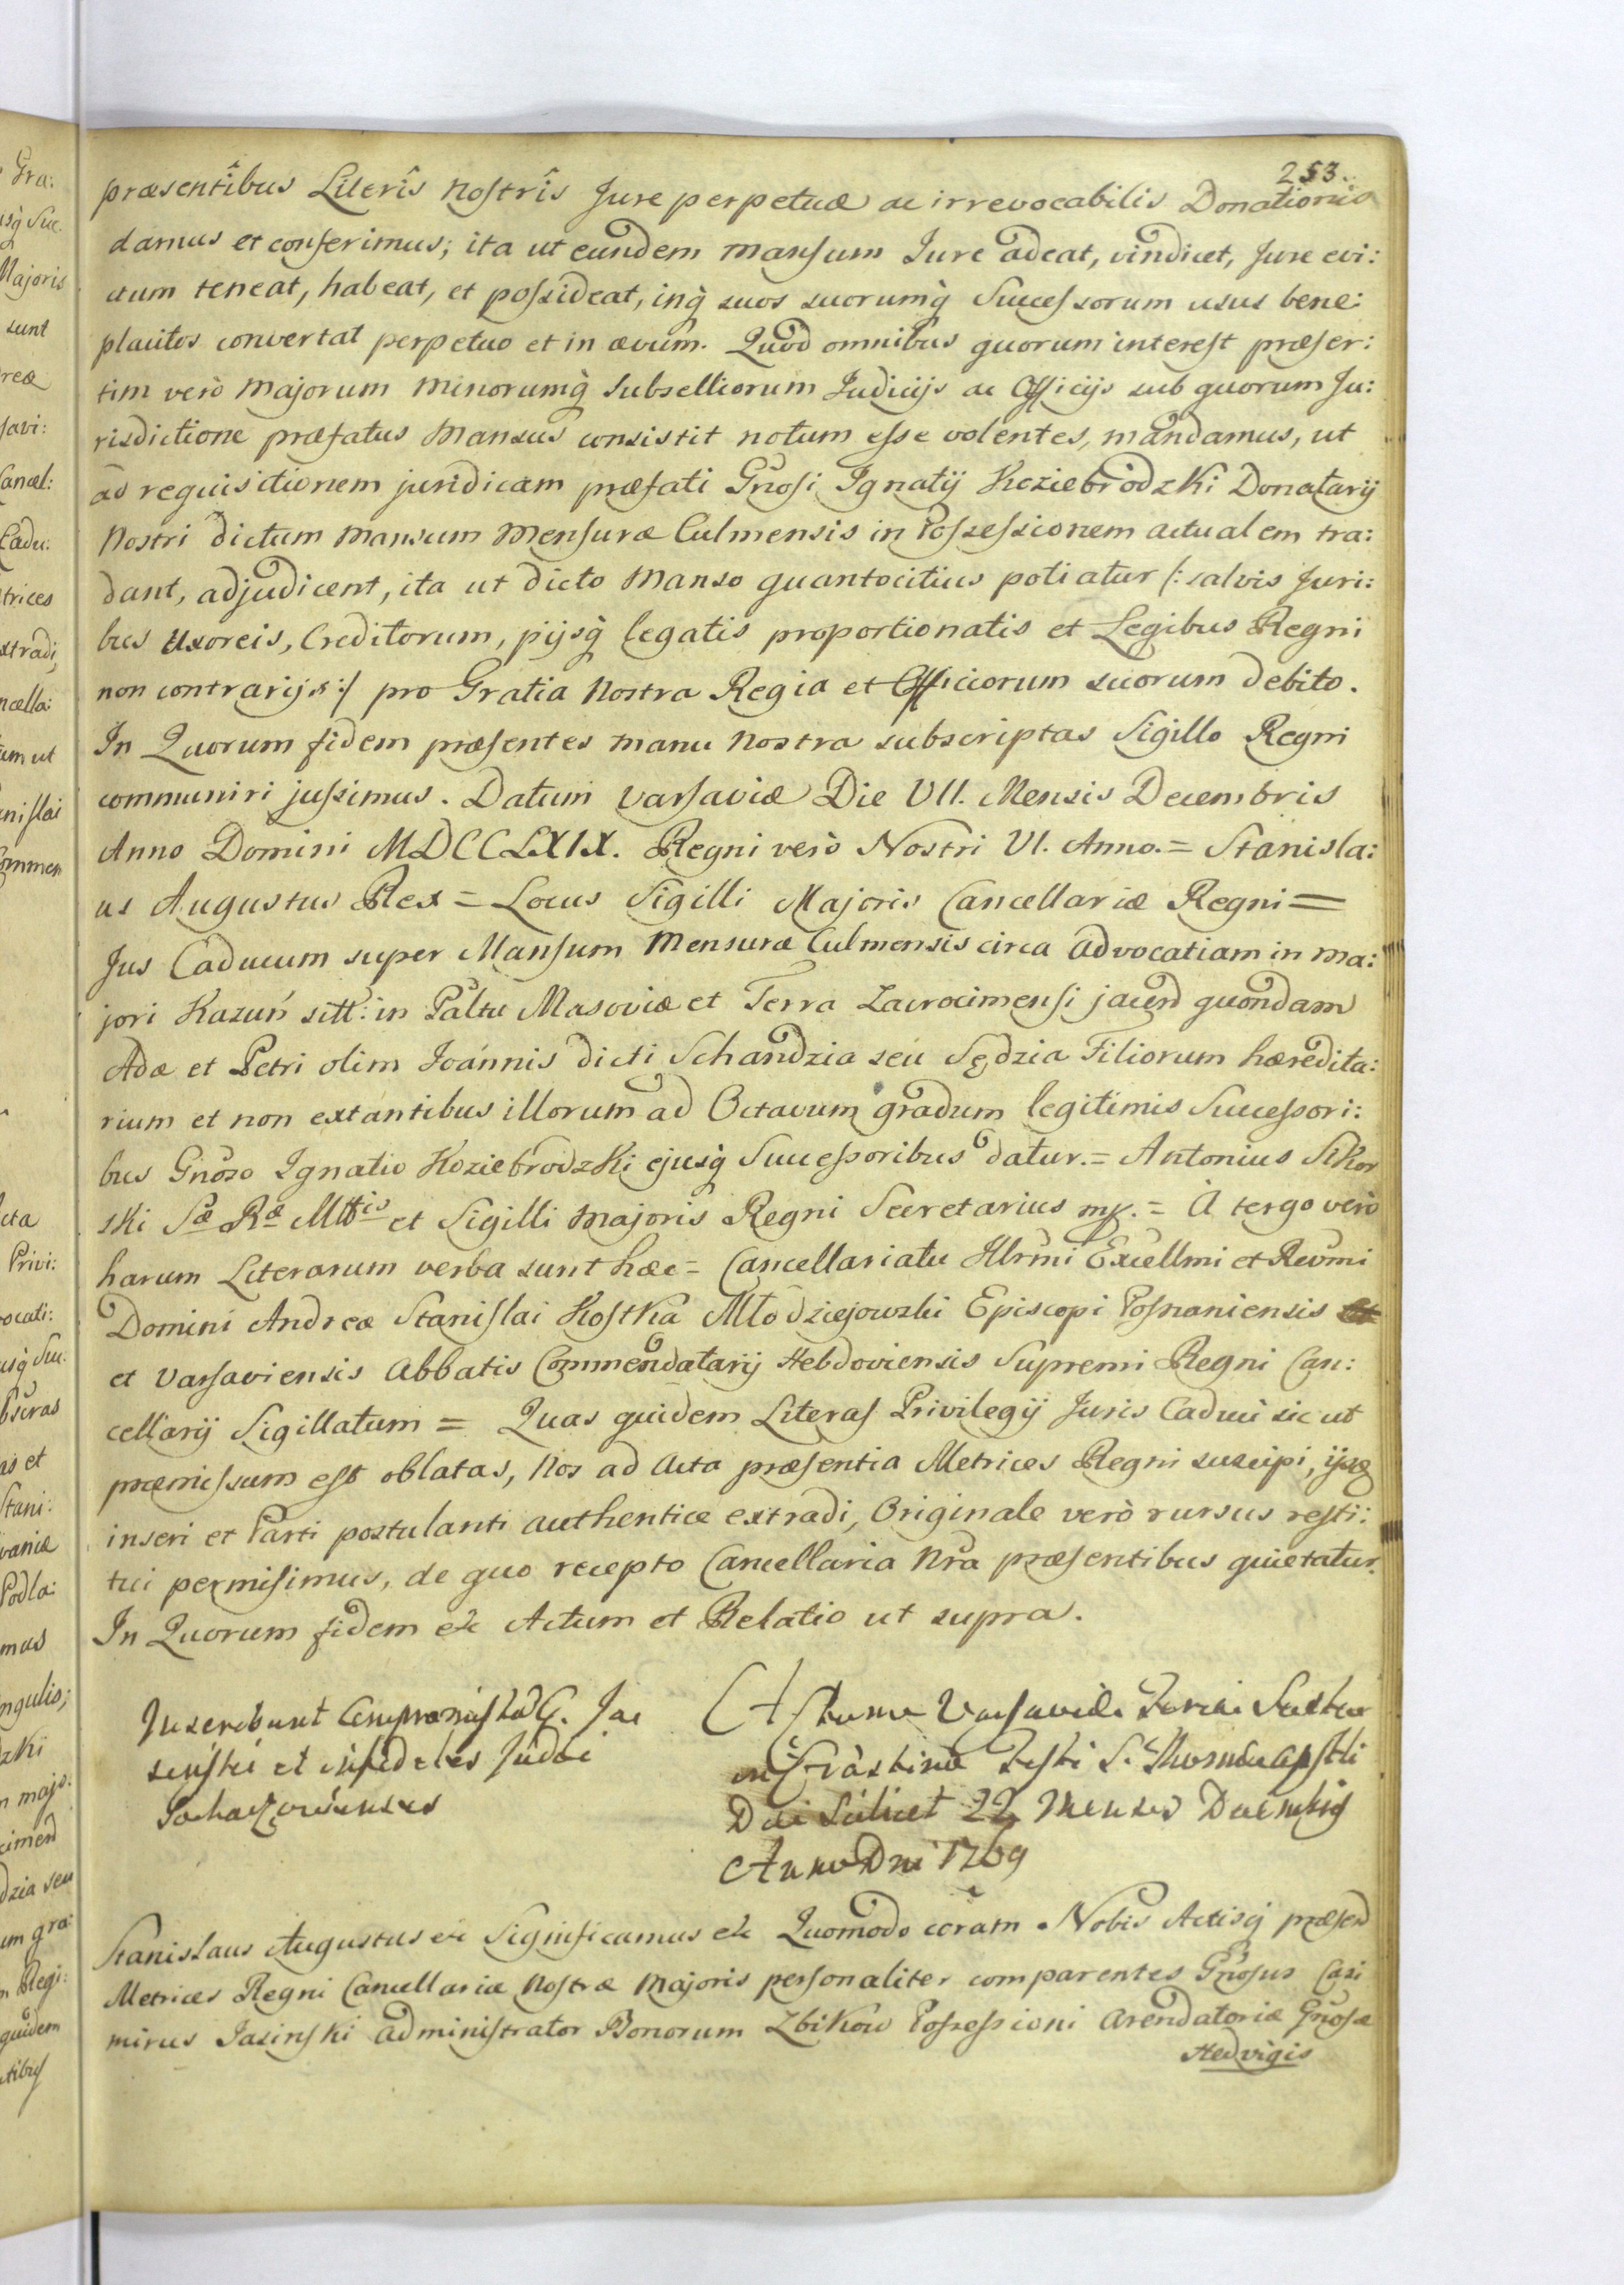 253.
præsentibus Literîs nostrîs Jure perpetuæ ac irrevocabilis Donationis
damus et conferimus; ita ut eundem mansum Jure adeat, vindicet, Jure evi:
ctum teneat, habeat, et possideat, inq̃ suos suorumq̃ Successorum usus bene:
placitos convertat perpetuo et in ævum. Quod omnibus quorum interest præser:
tim verò Majorum Minorumq̃ Subselliorum Judicijs ac Officijs sub quorum Ju:
risdictione præfatus Mansus consistit notum esse volentes, mandamus, ut
ad requisitionem juridicam præfati Gnosi Ignatij Koziebrodzki Donatarij
Nostri dictum Mansum Mensuræ Culmensis in Possessionem actualem tra:
dant, adjudicent, ita ut dicto Manso quantocitius potiatur /: salvis Juri:
bus Uxoreis, Creditorum, pijsq̃ legatis proportionatis et Legibus Regni
non contrarijs :/ pro Gratia Nostra Regia et Officiorum suorum debito.
In Quorum fidem præsentes manu Nostra subscriptas Sigillo Regni
communiri jussimus. Datum Varsaviæ Die VII. Mensis Decembris
Anno Domini MDCCLXIX. Regni verò Nostri VI. Anno. = Stanisla:
us Augustus Rex = Locus Sigilli Majoris Cancellariæ Regni =
Jus Caducum super Mansum Mensuræ Culmensis circa advocatiam in Ma:
jori Kazuń sitt: in Paltu Masoviæ et Terra Zacrocimensi jacend quondam
Adæ et Petri olim Joannis dicti Schandzia seu Sędzia Filiorum hæredita:
rium et non extantibus illorum ad Octavum gradum legitimis Successori:
bus Gnoso Ignatio Koziebrodzki ejusq̃ Successoribus datur. = Antonius Sikor
ski Sæ Ræ Mttis et Sigilli Majoris Regni Secretarius mp. = A tergo verò
harum Literarum verba sunt hæc = Cancellariatu Illrmi Excellmi et Revmi
Domini Andreæ Stanislai Kostka Młodziejowski Episcopi Posnaniensis
et Varsaviensis Abbatis Commendatarij Hebdoviensis Supremi Regni Can:
cellarij Sigillatum = Quas quidem Literas Privilegij Juris Caduci sic ut
præmissum est oblatas, Nos ad Acta præsentia Metrices Regni suscipi, ijsq̃
inseri et Parti postulanti authentice extradi, Originale verò rursus resti:
tui permisimus, de quo recepto Cancellaria Nra præsentibus quietatur.
In Quorum fidem etc Actum et Relatio ut supra.
Inscribunt G. Ja
sinski et infideles Judæi
Sochaczovienses
Actum Varsaviæ Feria Sexta
in Crastino Festi S. Thomæ Apstli
Die Scilicet 22 Mensis Decembris
Anno Dni 1769
Stanislaus Augustus etc Significamus etc Quomodo coram Nobis Actisq̃ præsend
Metrices Regni Cancellariæ Nostræ Majoris personaliter comparentes Gnosus Casi
mirus Jasinski Administrator Bonorum Zbikow Possessioni Arendatoriæ Gnosæ
Hedvigis